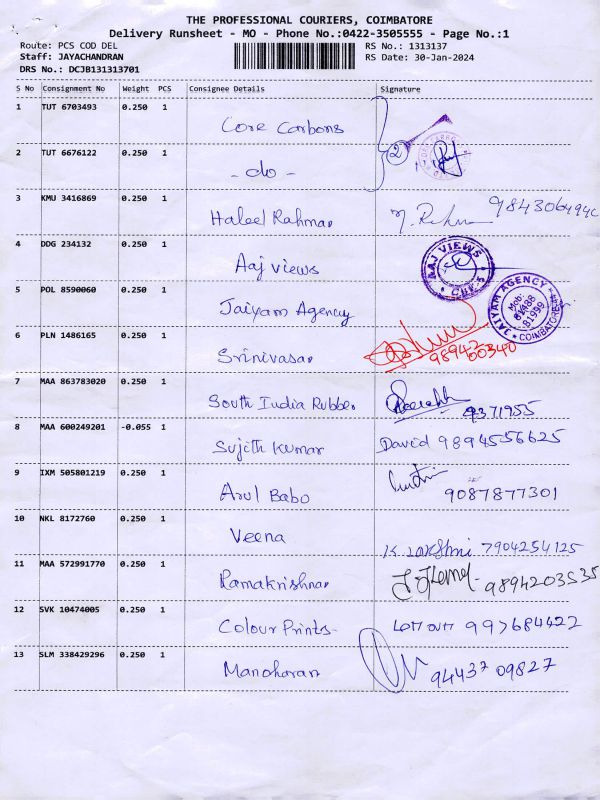 THE PROFESSIONAL COURIERS, COIMBATORE
Delivery Runsheet - MO - Phone No.:0422-3505555 - Page No.:1
Route: PCS COD DEL RS No.: 1313137
Staff: JAYACHANDRAN RS Date: 30-Jan-2024
DRS No.: DCJB131313701
S No Consignment No Weight PCS Consignee Details Signature
1 TUT 6703493 0.250 1 Core Carbons
2
2 TUT 6676122 0.250 1 - do -
3 KMU 3416869 0.250 1 Haleel Rahman
4 DDG 234132 0.250 1 Aaj views AAJ VIEWS CBE-5
5 POL 8590060 0.250 1 Jaiyam Agency JAIYAM AGENCY Mob: 81488 81999 COIMBATORE
6 PLN 1486165 0.250 1 Srinivasan
7 MAA 863783020 0.250 1 South India Rubber 9371955
8 MAA 600249201 -0.055 1 Sujith Kumar David 9894556625
9 IXM 505801219 0.250 1 Arul Babo 9087877301
10 NKL 8172760 0.250 1 Veena K. Lakshmi 7904254125
11 MAA 572991770 0.250 1 Ramakrishnan 9894203535
12 SVK 10474005 0.250 1 Colour Prints- 997684422
13 SLM 338429296 0.250 1 Manoharan 94437 09827